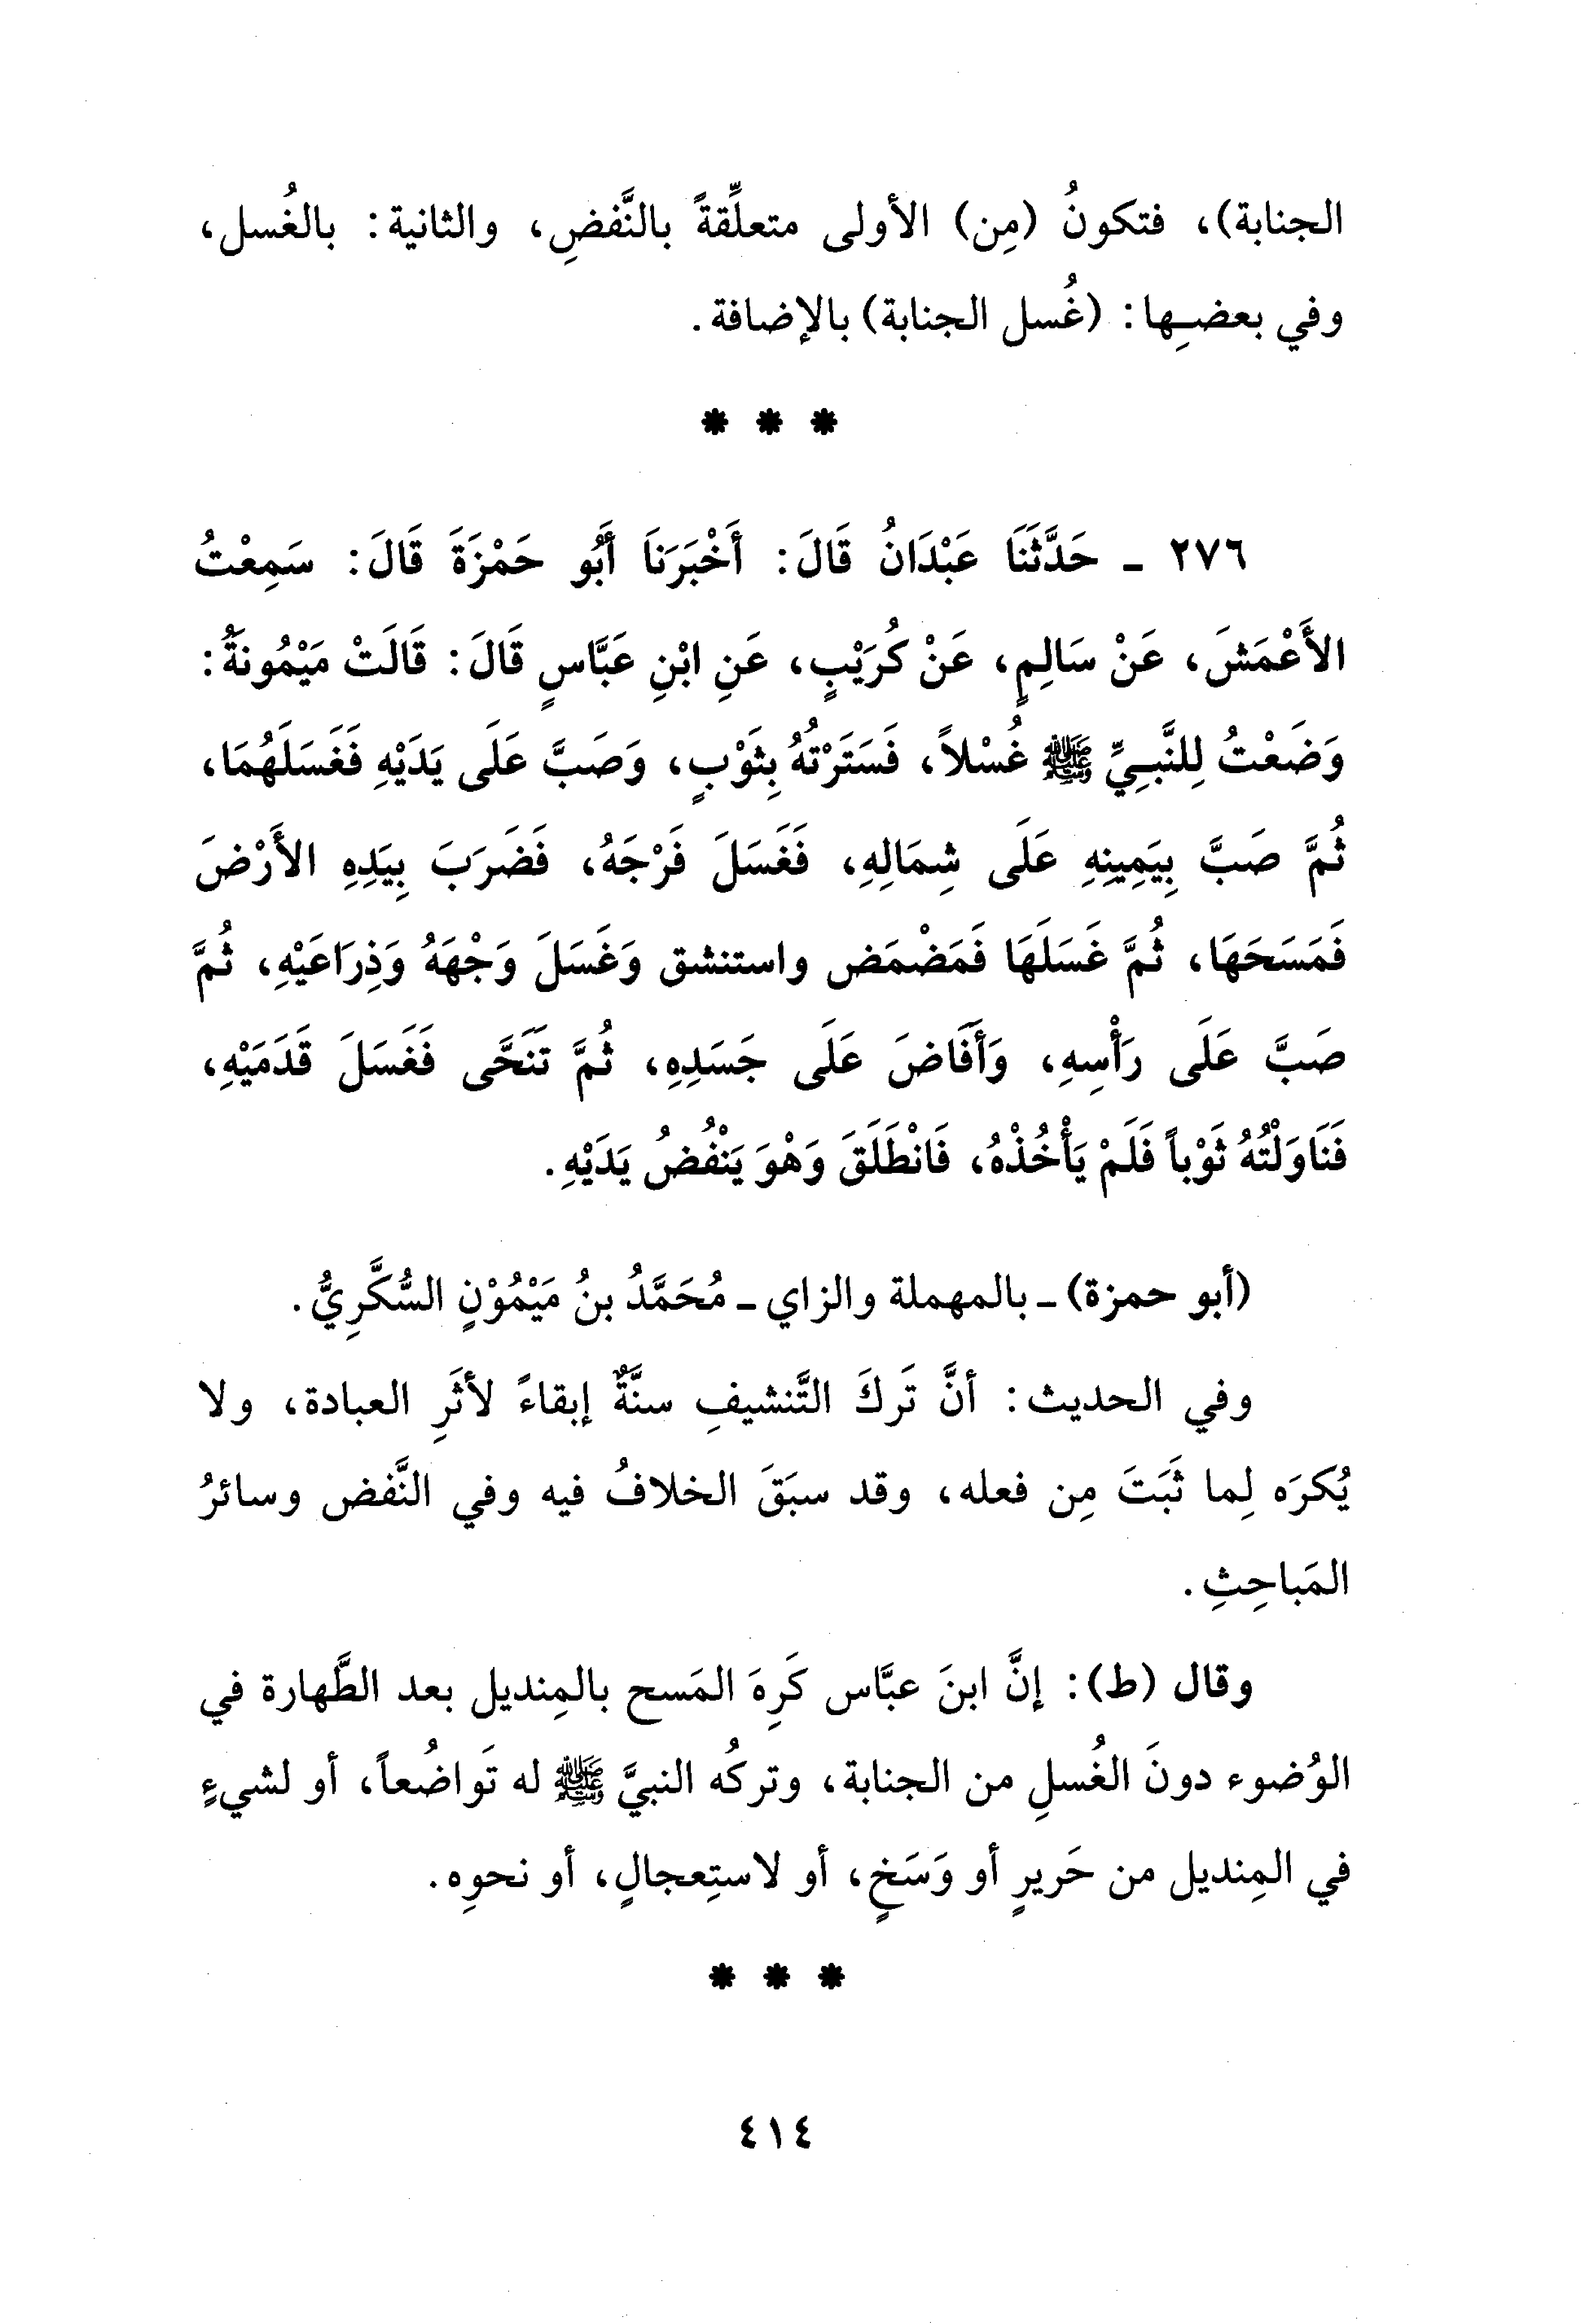 الجنابة)، فتكونُ (مِن) الأولى متعلِّقةً بالنَّفضِ، والثانية: بالغُسل،
وفي بعضِها: (غُسل الجنابة) بالإضافة.
* * *
٢٧٦ ـ حَدَّثَنَا عَبْدَانُ قَالَ: أَخْبَرَنَا أَبُو حَمْزَةَ قَالَ: سَمِعْتُ
الأَعْمَشَ، عَنْ سَالِمٍ، عَنْ كُرَيْبٍ، عَنِ ابْنِ عَبَّاسٍ قَالَ: قَالَتْ مَيْمُونَةُ:
وَضَعْتُ لِلنَّبِيِّ ﷺ غُسْلاً، فَسَتَرْتُهُ بِثَوْبٍ، وَصَبَّ عَلَى يَدَيْهِ فَغَسَلَهُمَا،
ثُمَّ صَبَّ بِيَمِينِهِ عَلَى شِمَالِهِ، فَغَسَلَ فَرْجَهُ، فَضَرَبَ بِيَدِهِ الأَرْضَ
فَمَسَحَهَا، ثُمَّ غَسَلَهَا فَمَضْمَض واستنشق وَغَسَلَ وَجْهَهُ وَذِرَاعَيْهِ، ثُمَّ
صَبَّ عَلَى رَأْسِهِ، وَأَفَاضَ عَلَى جَسَدِهِ، ثُمَّ تَنَحَّى فَغَسَلَ قَدَمَيْهِ،
فَنَاوَلْتُهُ ثَوْباً فَلَمْ يَأْخُذْهُ، فَانْطَلَقَ وَهْوَ يَنْفُضُ يَدَيْهِ.
(أبو حمزة) ـ بالمهملة والزاي ـ مُحَمَّدُ بنُ مَيْمُوْنٍ السُّكَّرِيُّ.
وفي الحديث: أنَّ تَركَ التَّنشيفِ سنَّةٌ إبقاءً لأثَرِ العبادة، ولا
يُكرَه لِما ثَبَتَ مِن فعله، وقد سبَقَ الخلافُ فيه وفي النَّفض وسائرُ
المَباحِثِ.
وقال (ط): إنَّ ابنَ عبَّاس كَرِهَ المَسح بالمِنديل بعد الطَّهارة في
الوُضوء دونَ الغُسلِ من الجنابة، وتركُه النبيَّ ﷺ له تَواضُعاً، أو لشيءٍ
في المِنديل من حَريرٍ أو وَسَخٍ، أو لاستِعجالٍ، أو نحوِه.
* * *
٤١٤